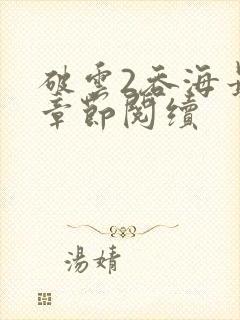 破雲2吞海最
章節閱續
湯婧